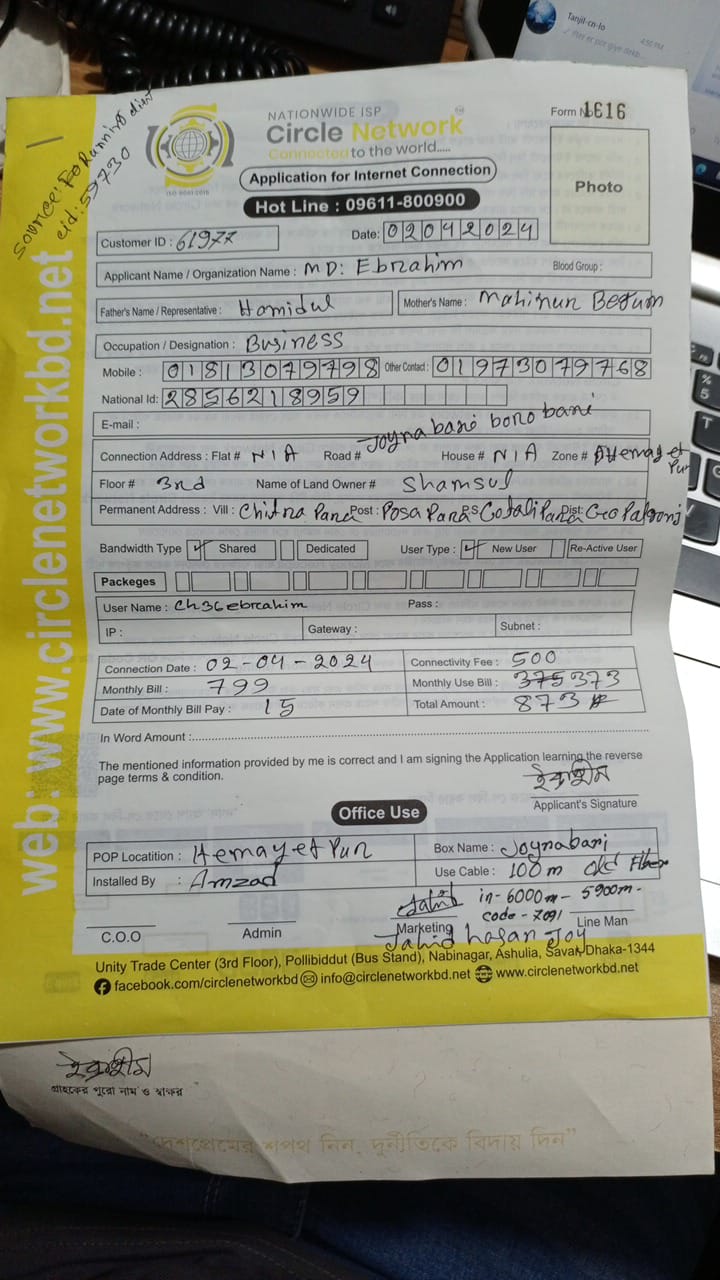 Tanjil-cn-lo
4:50 PM
Source: Fo Running clint
cid: 59730
NATIONWIDE ISP
Circle Network
Connected to the world.....
ISO 9001:2015
Form No 1616
Application for Internet Connection
Hot Line : 09611-800900
Photo
Customer ID : 61977
Date: 02042024
Applicant Name / Organization Name : MD: Ebrahim Blood Group :
Father's Name / Representative : Hamidul Mother's Name : Mahinur Begum
Occupation / Designation : Business
Mobile : 01813079798 Other Contact : 01973079768
National Id: 2856218959
E-mail :
Connection Address : Flat # N/A Road # Joynabari boro bari House # N/A Zone # Hemayet Pur
Floor # 3rd Name of Land Owner # Shamsul
Permanent Address : Vill : Chitra Para Post : Posa Para P.S Cotali Para Dist: Gopalgonj
Bandwidth Type ✓ Shared Dedicated User Type : ✓ New User Re-Active User
Packeges
User Name : Ch36ebrahim Pass :
IP : Gateway : Subnet :
Connection Date : 02-04-2024 Connectivity Fee : 500
Monthly Bill : 799 Monthly Use Bill : 375 373
Date of Monthly Bill Pay : 15 Total Amount : 873
In Word Amount :
The mentioned information provided by me is correct and I am signing the Application learning the reverse
page terms & condition.
ইব্রাহীম
Applicant's Signature
Office Use
POP Locatition : Hemayet Pur Box Name : Joynabari
Installed By : Amzad Use Cable : 100m Old Fiber
Jahid in-6000m- 5900m.
code-7091
C.O.O Admin Marketing Line Man
Jahid hasan Joy
Unity Trade Center (3rd Floor), Pollibiddut (Bus Stand), Nabinagar, Ashulia, Savar, Dhaka-1344
facebook.com/circlenetworkbd info@circlenetworkbd.net www.circlenetworkbd.net
web: www.circlenetworkbd.net
ইব্রাহীম
গ্রাহকের পুরো নাম ও স্বাক্ষর
"দেশপ্রেমের শপথ নিন, দুর্নীতিকে বিদায় দিন"